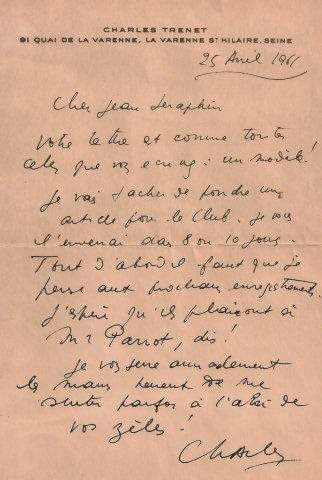 CHARLES TRENET
91 QUAI DE LA VARENNE, LA VARENNE St HILAIRE, SEINE
25 Avril 1961
Cher Jean Seraphin
Votre lettre est comme toutes
celles que vous ecrivez : un modèle !
Je vais tacher de pondre un
article pour le Club. Je vous
l'enverrai dans 8 ou 10 jours.
Tout d'abord il faut que je
pense aux prochains enregistrements.
J'espère qu'ils plairont à
Mr Parrot, dis !
Je vous serre amicalement
les mains heureux de me
sentir parfois à l'abri de
vos zèles !
Charles